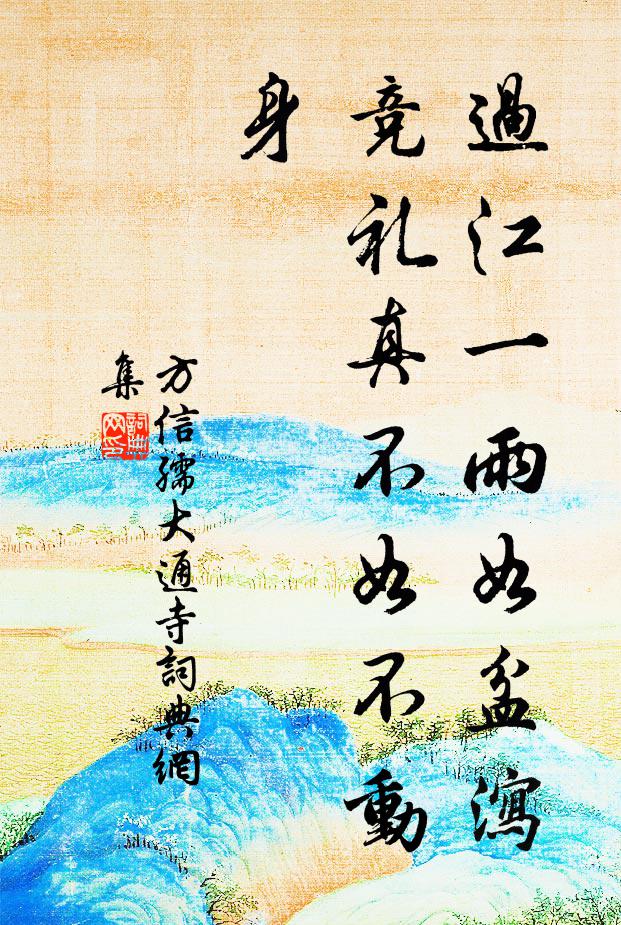 過江一雨如盆瀉
竞礼真不如不動
身
方信孺大通寺詞典網
集
詞典網印